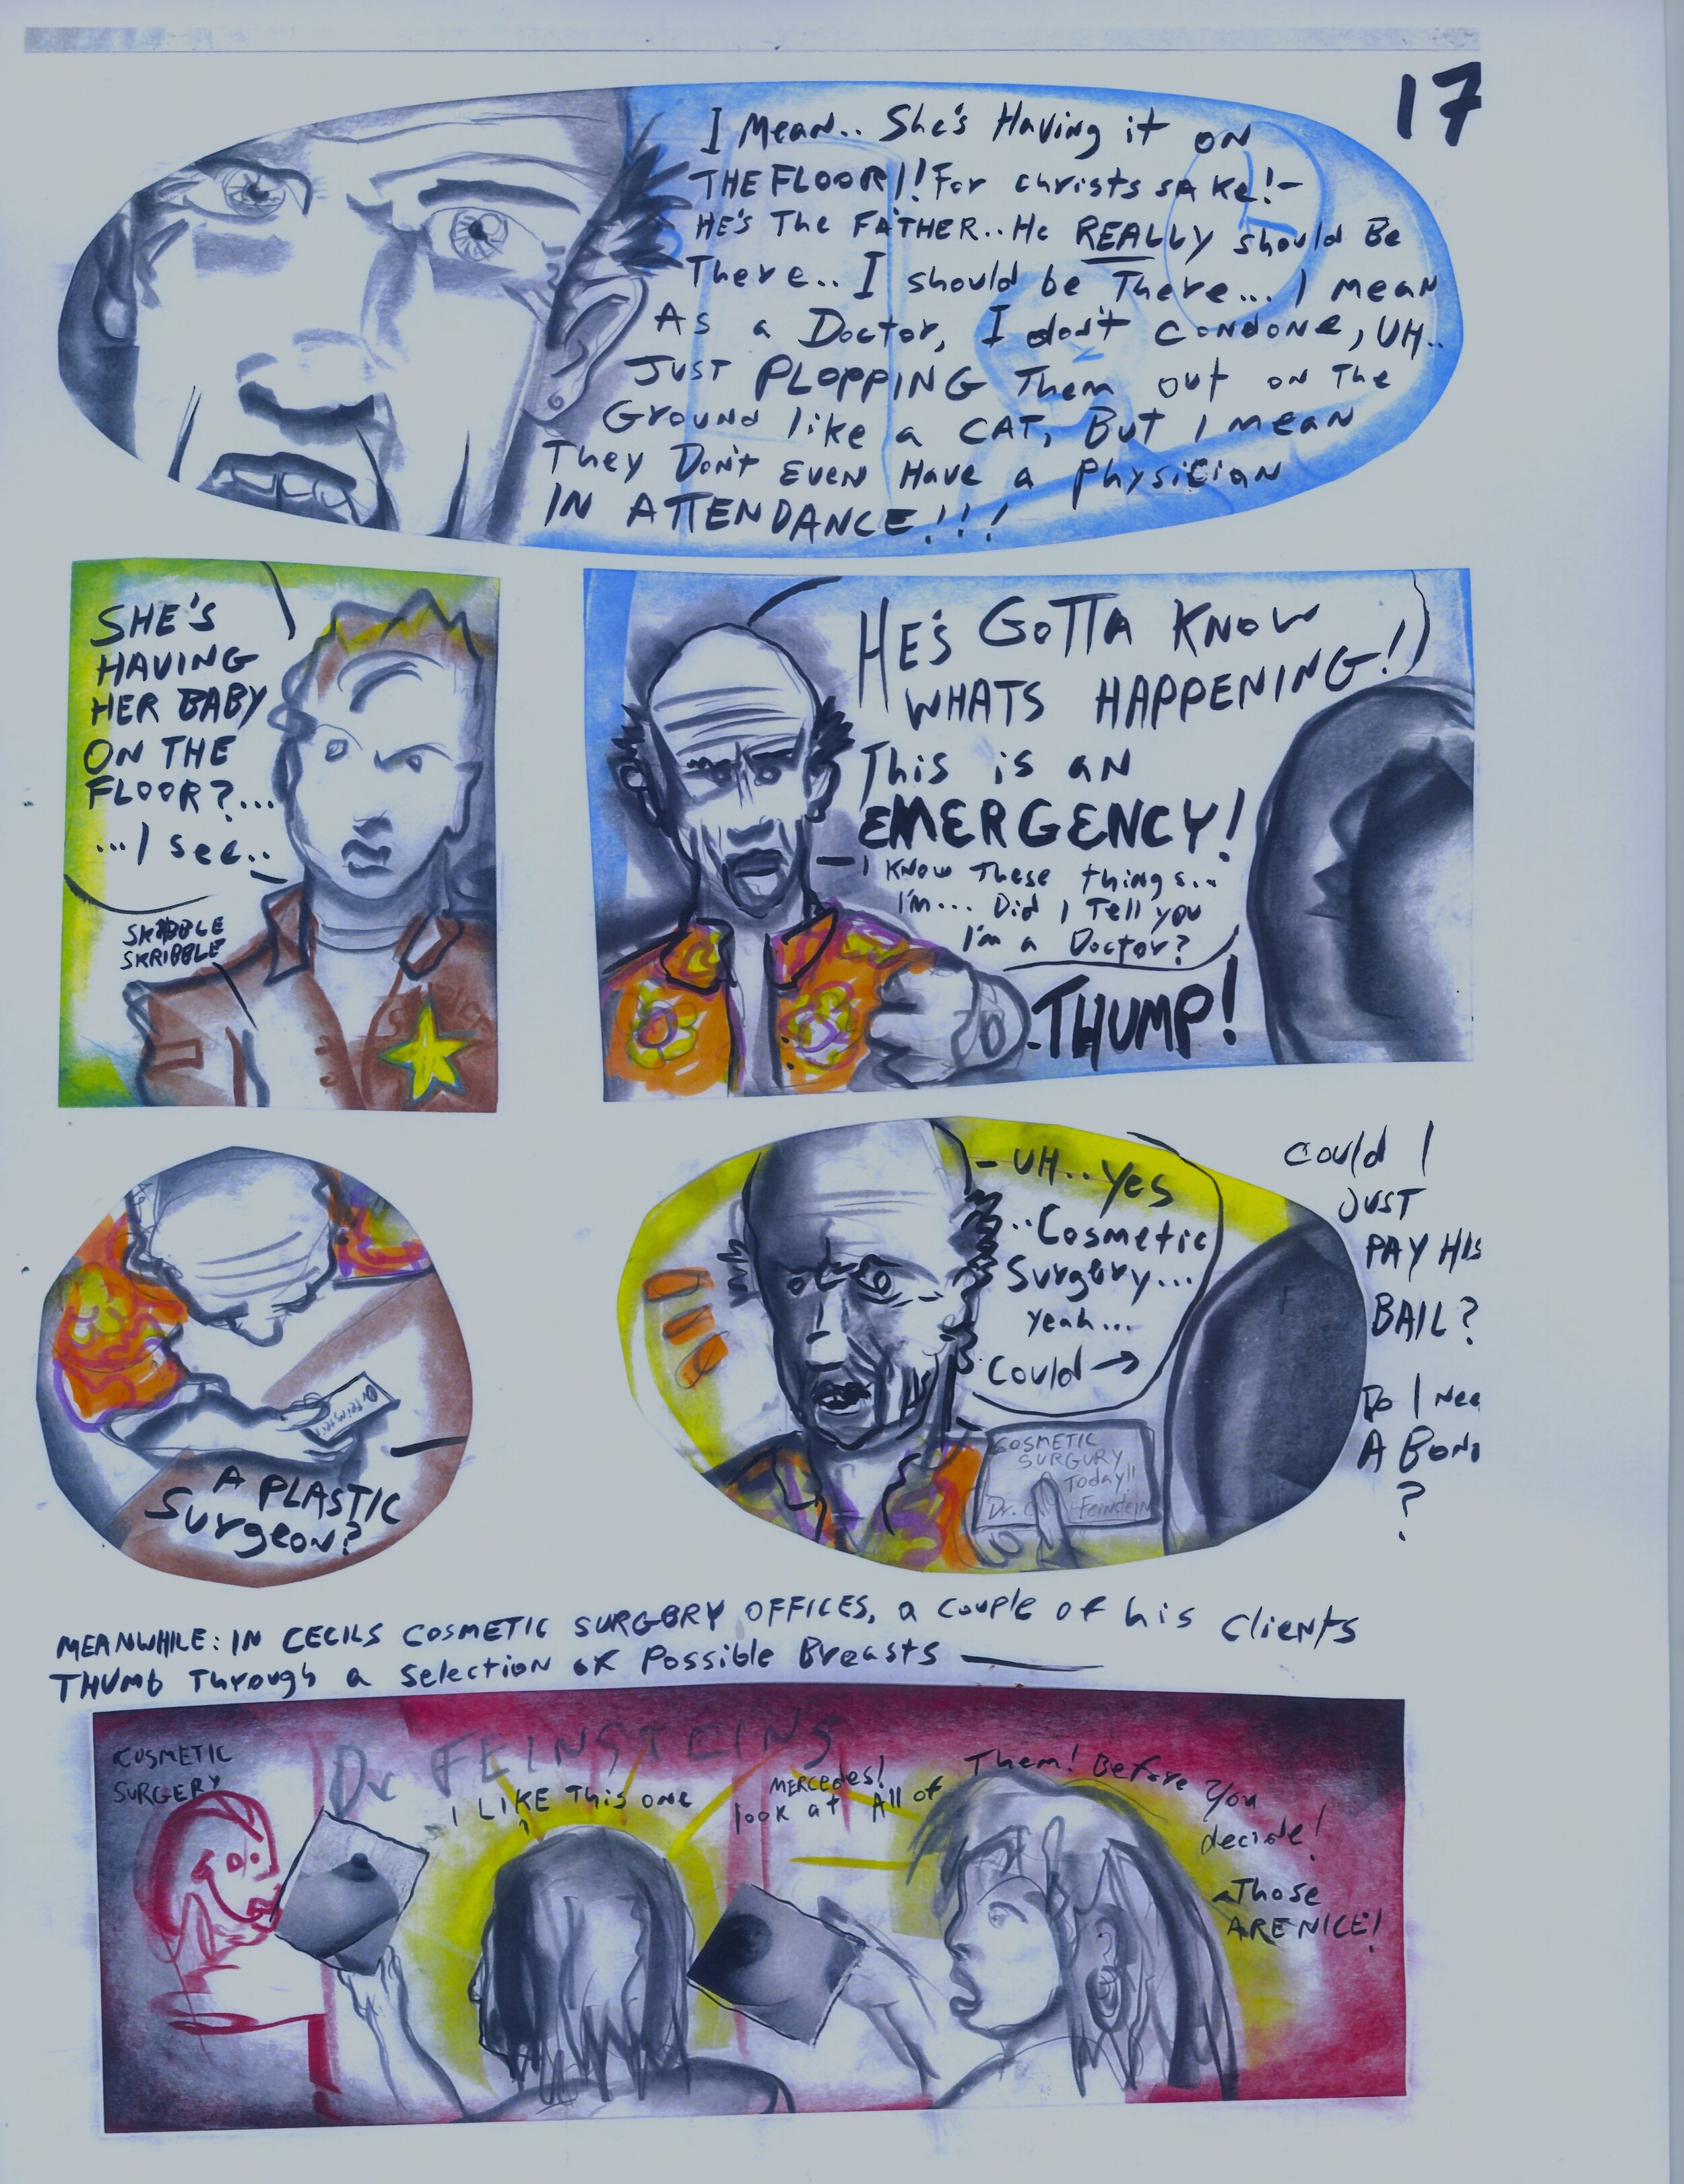 17
I Mean.. She's Having it ON
THE FLOOR!! For christs sAKe!-
HE'S The FATHER.. He REALLY should Be
There.. I should be There... I mean
As a Doctor, I don't CONDONe, UH..
JUST PLOPPING Them out on The
Ground like a CAT, But I mean
They Don't EVEN Have a physician
IN ATTENDANCE!!!
SHE'S
HAVING
HER BABY
ON THE
FLOOR?...
...I see..
SKRIBBLE
SKRIBBLE
HE'S GOTTA KNOW
WHATS HAPPENING!
This is aN
EMERGENCY!
I KNOW These things...
I'm... Did I Tell you
I'm a Doctor?
THUMP!
A PLASTIC
Surgeon?
- UH.. Yes
..Cosmetic
Surgery...
yeah...
Could →
COSMETIC
SURGURY
Today!!
Dr. Feinstein
Could I
JUST
PAY HIS
BAIL?
Do I Nee
A BOND
?
MEANWHILE: IN CECILS COSMETIC SURGERY OFFICES, a couple of his Clients
THUMB Through a Selection of Possible Breasts
COSMETIC
SURGERY
Dr FEINSTEINS
I LIKE This one
MERCEDES!
look at All of Them! Before you
decide!
Those
ARE NICE!